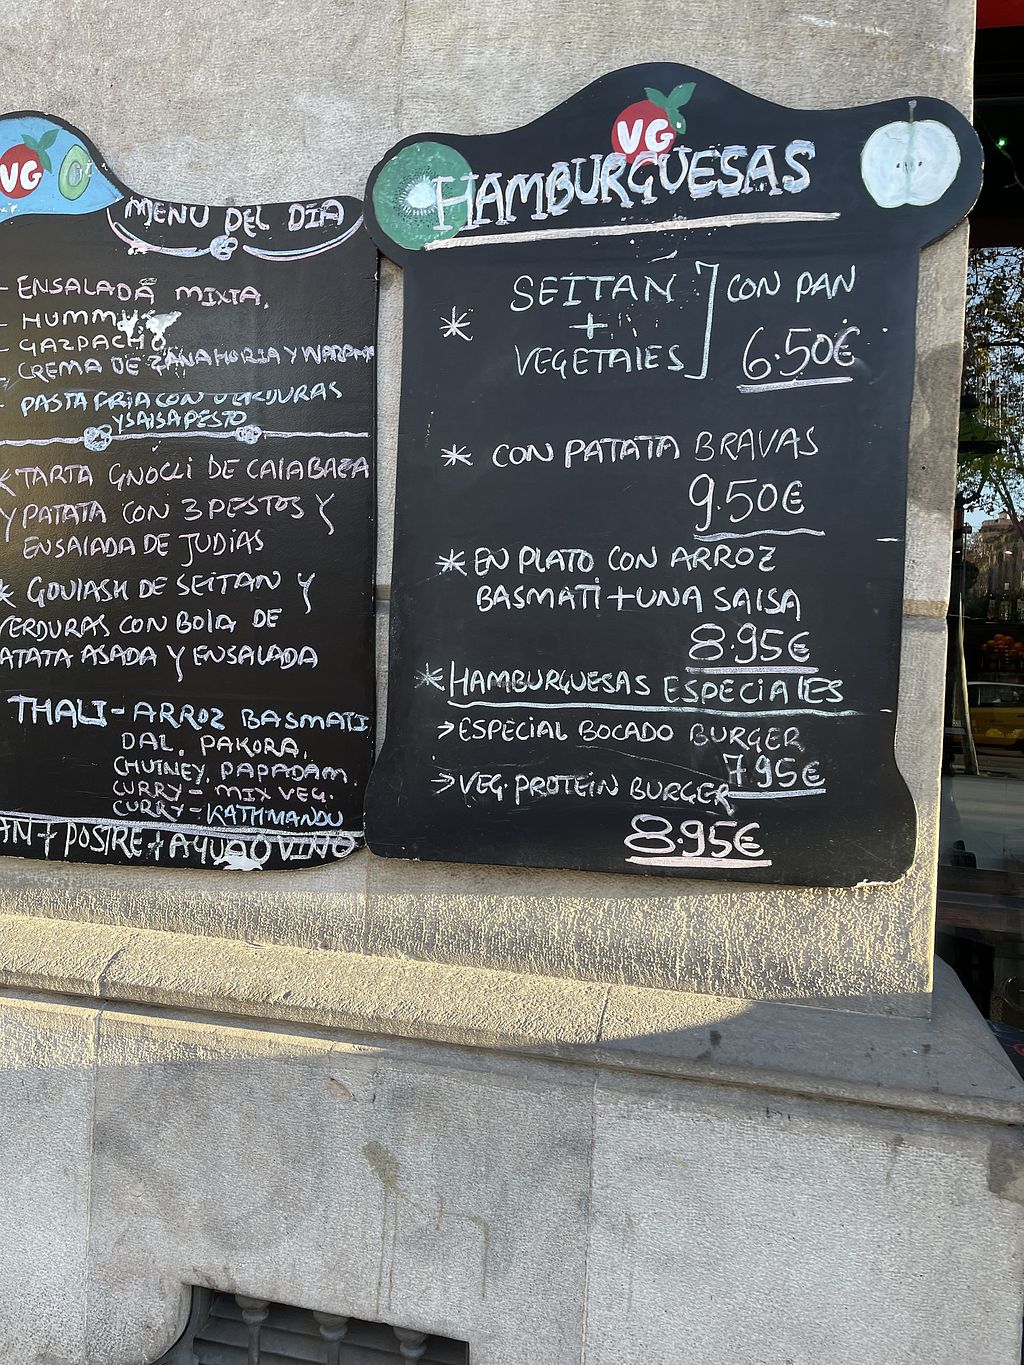 VG
MENU DEL DIA
- ENSALADA MIXTA,
- HUMMUS
- GAZPACHO
- CREMA DE ZANAHORIA Y
- PASTA FRIA CON VERDURAS
Y SALSA PESTO
* TARTA GNOCLI DE CALABAZA
Y PATATA CON 3 PESTOS Y
ENSALADA DE JUDIAS
* GOULASH DE SEITAN Y
VERDURAS CON BOLA DE
PATATA ASADA Y ENSALADA
THALI - ARROZ BASMATI
DAL, PAKORA,
CHUTNEY, PAPADAM
CURRY - MIX VEG.
CURRY - KATHMANDU
PAN + POSTRE + AGUA O VINO
VG
HAMBURGUESAS
* SEITAN ] CON PAN
+
VEGETALES 6.50€
* CON PATATA BRAVAS
9.50€
* EN PLATO CON ARROZ
BASMATI + UNA SALSA
8.95€
* HAMBURGUESAS ESPECIALES
→ ESPECIAL BOCADO BURGER
7.95€
→ VEG. PROTEIN BURGER
8.95€